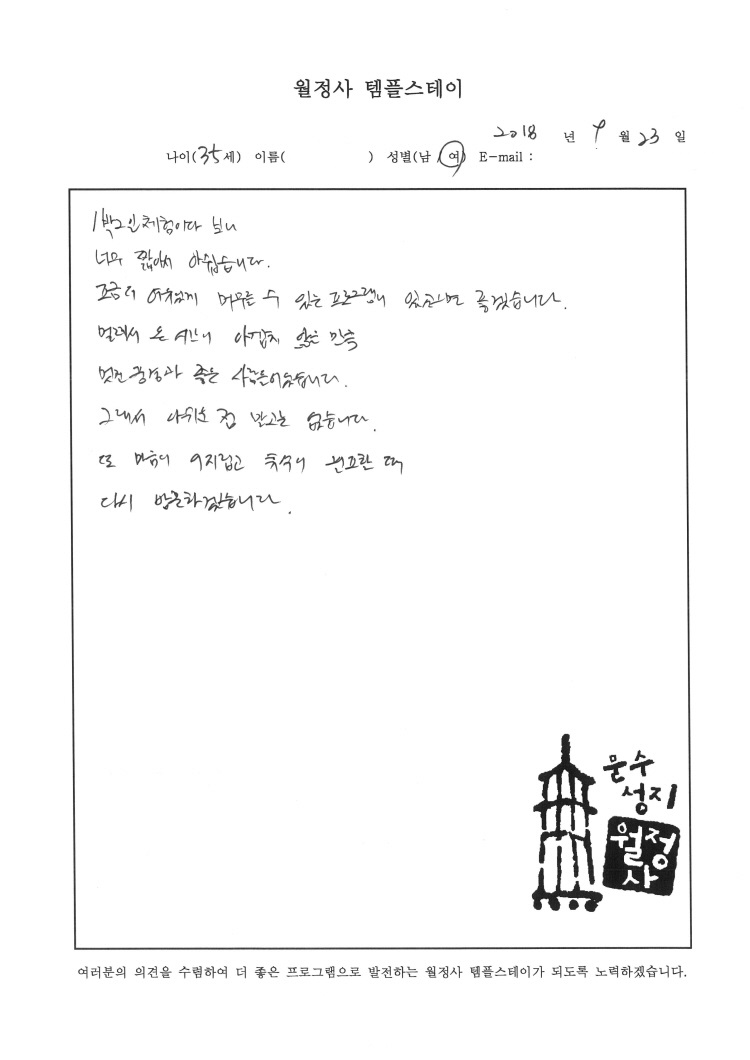 월정사 템플스테이
2018 년 9 월 23 일
나이(35세) 이름( ) 성별(남, 여) E-mail :
1박2일 체험이다 보니
너무 짧아서 아쉽습니다.
조금 더 여유있게 머무를 수 있는 프로그램이 있으면 좋겠습니다.
멀리서 온 시간이 아깝지 않은 만큼
멋진 풍경과 좋은 사람들이었습니다.
그래서 아쉬운 점 말고는 없습니다.
또 마음이 어지럽고 속이 할 때
다시 방문하겠습니다.
문수
성지
월정
사
여러분의 의견을 수렴하여 더 좋은 프로그램으로 발전하는 월정사 템플스테이가 되도록 노력하겠습니다.